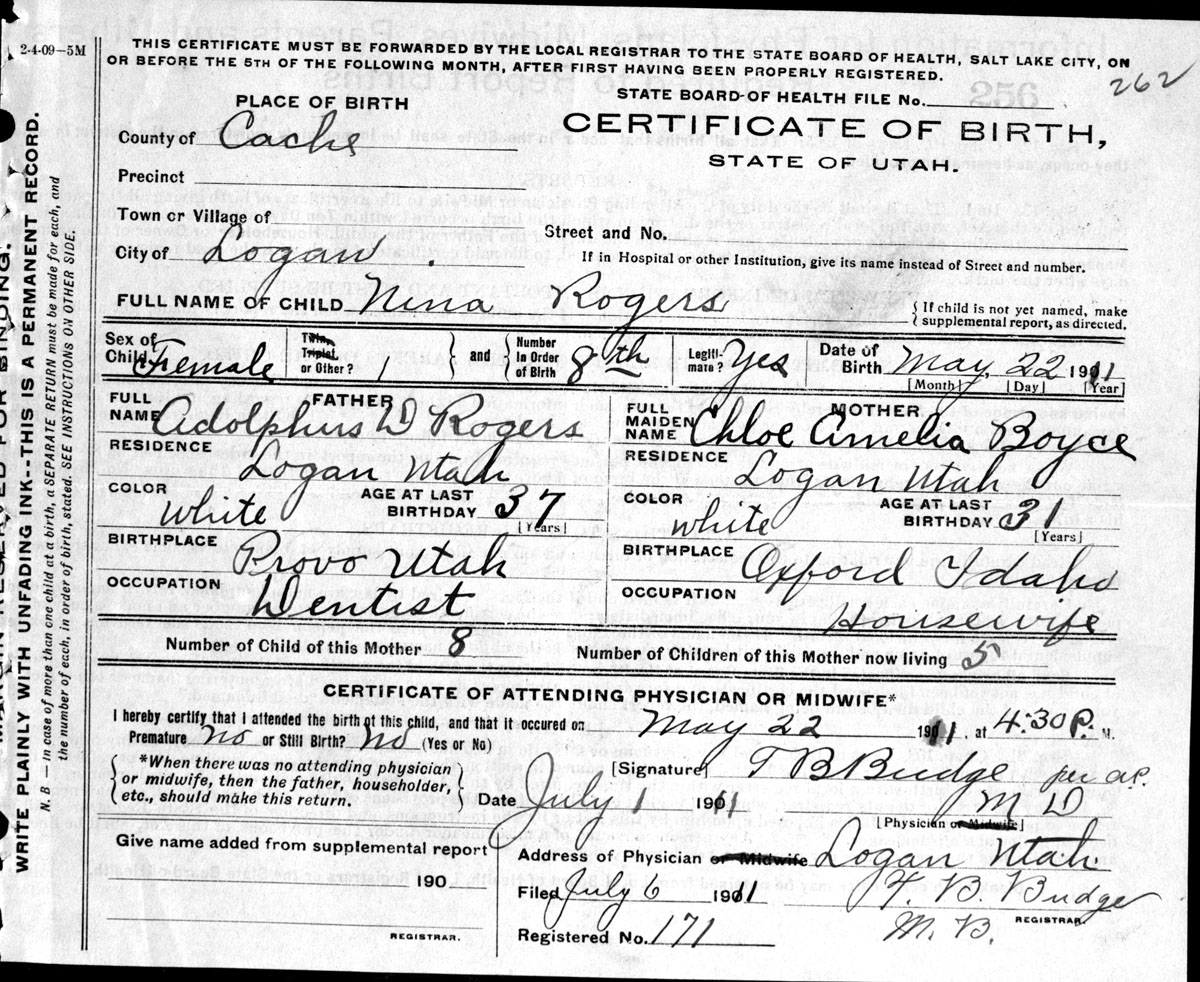 2-4-09-5M
THIS CERTIFICATE MUST BE FORWARDED BY THE LOCAL REGISTRAR TO THE STATE BOARD OF HEALTH, SALT LAKE CITY, ON
OR BEFORE THE 5TH OF THE FOLLOWING MONTH, AFTER FIRST HAVING BEEN PROPERLY REGISTERED.
262
STATE BOARD OF HEALTH FILE No. 256
PLACE OF BIRTH
CERTIFICATE OF BIRTH,
STATE OF UTAH.
County of Cache
Precinct
Town or Village of
Street and No.
City of Logan.
If in Hospital or other Institution, give its name instead of Street and number.
FULL NAME OF CHILD Nina Rogers
{ If child is not yet named, make
supplemental report, as directed.
Sex of Child Female
Twin, Triplet, or Other? 1 } and { Number in Order of Birth 8th
Legitimate? Yes
Date of Birth May, 22 1911
[Month] [Day] [Year]
FATHER
FULL NAME Adolphus D Rogers
RESIDENCE Logan Utah
COLOR white AGE AT LAST BIRTHDAY 37 [Years]
BIRTHPLACE Provo Utah
OCCUPATION Dentist
MOTHER
FULL MAIDEN NAME Chloe Amelia Boyce
RESIDENCE Logan Utah
COLOR white AGE AT LAST BIRTHDAY 31 [Years]
BIRTHPLACE Oxford Idaho
OCCUPATION Housewife
Number of Child of this Mother 8 Number of Children of this Mother now living 5
CERTIFICATE OF ATTENDING PHYSICIAN OR MIDWIFE*
I hereby certify that I attended the birth of this child, and that it occured on May 22 1911, at 4:30 P. M.
Premature no or Still Birth? No (Yes or No)
*When there was no attending physician
or midwife, then the father, householder,
etc., should make this return.
[Signature] T B Budge per a.P.
M D
[Physician or Midwife]
Date July 1 1911
Give name added from supplemental report
190
REGISTRAR.
Address of Physician or Midwife Logan Utah.
Filed July 6 1911
T. B. Budge
M. B. REGISTRAR
Registered No. 171
RESERVED FOR BINDING.
WRITE PLAINLY WITH UNFADING INK--THIS IS A PERMANENT RECORD.
N. B.—In case of more than one child at a birth, a SEPARATE RETURN must be made for each, and
the number of each, in order of birth, stated. SEE INSTRUCTIONS ON OTHER SIDE.